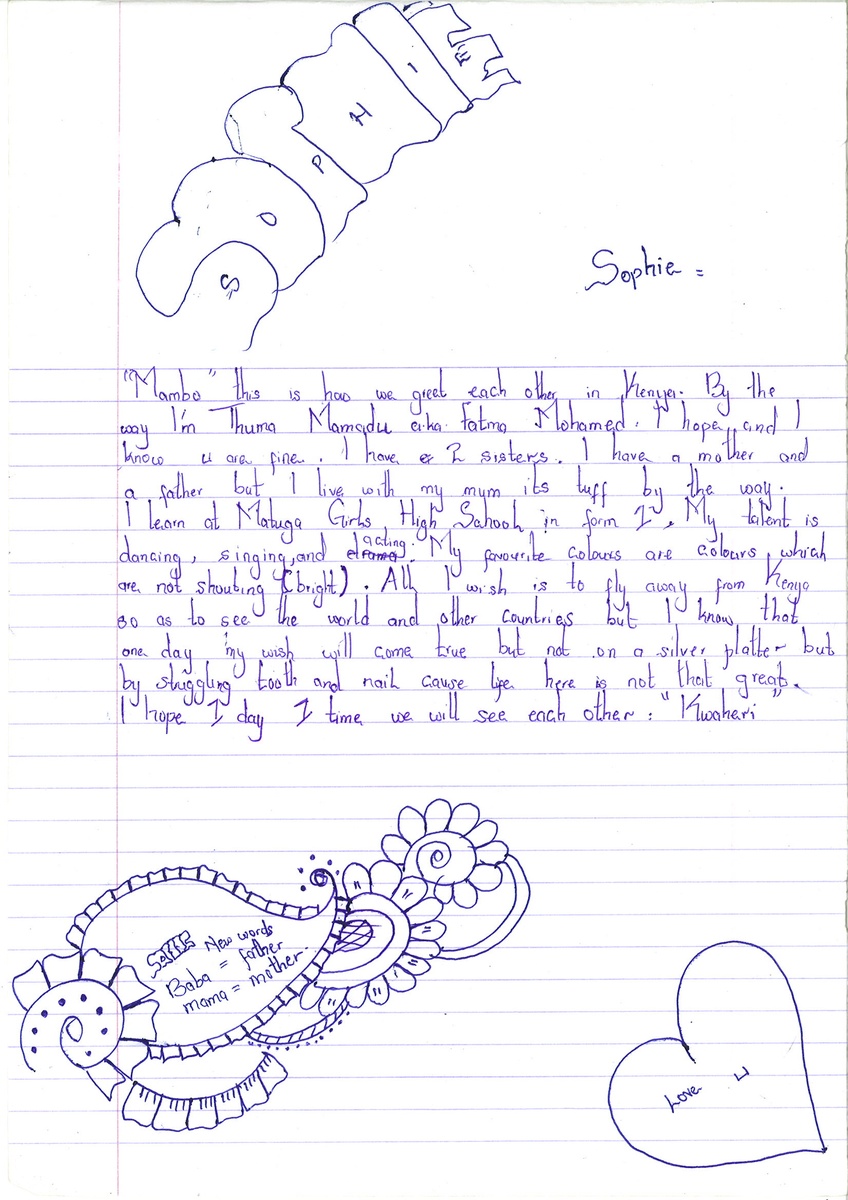 SOPHIE
Sophie =
"Mambo" this is how we great each other in Kenya. By the
way I'm Thuma Mamadu a.k.a. Fatma Mohamed. I hope and I
know u are fine. I have 2 sisters. I have a mother and
a father but I live with my mum its tuff by the way.
I learn at Matuga Girls High School in form 1, My talent is
dancing, singing, and acting. My favourite colours are colours which
are not shouting (bright). All I wish is to fly away from Kenya
so as to see the world and other countries but I know that
one day my wish will come true but not on a silver platter but
by struggling tooth and nail cause life here is not that great.
I hope 1 day 1 time we will see each other. "Kwaheri"
New words
Baba = father
mama = mother.
Love U